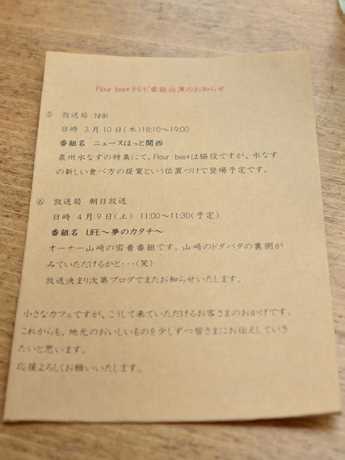 Flour best テレビ番組出演のお知らせ
⑤ 放送局 NHK
日時 3月10日(木)18:10~19:00
番組名 ニュースほっと関西
泉州水なすの特集にて、Flour bestは脇役ですが、水なす
の新しい食べ方の提案という位置づけで登場予定です。
⑥ 放送局 朝日放送
日時 4月9日(土) 11:00~11:30(予定)
番組名 LIFE~夢のカタチ~
オーナー山崎の密着番組です。山崎のドタバタの裏側が
みていただけるかと・・・(笑)
放送決まり次第ブログでまたお知らせいたします。
小さなカフェですが、こうして来ていただけるお客さまのおかげです。
これからも、地元のおいしいものを少しずつ皆さまにお伝えしていき
たいと思います。
応援よろしくお願いいたします。